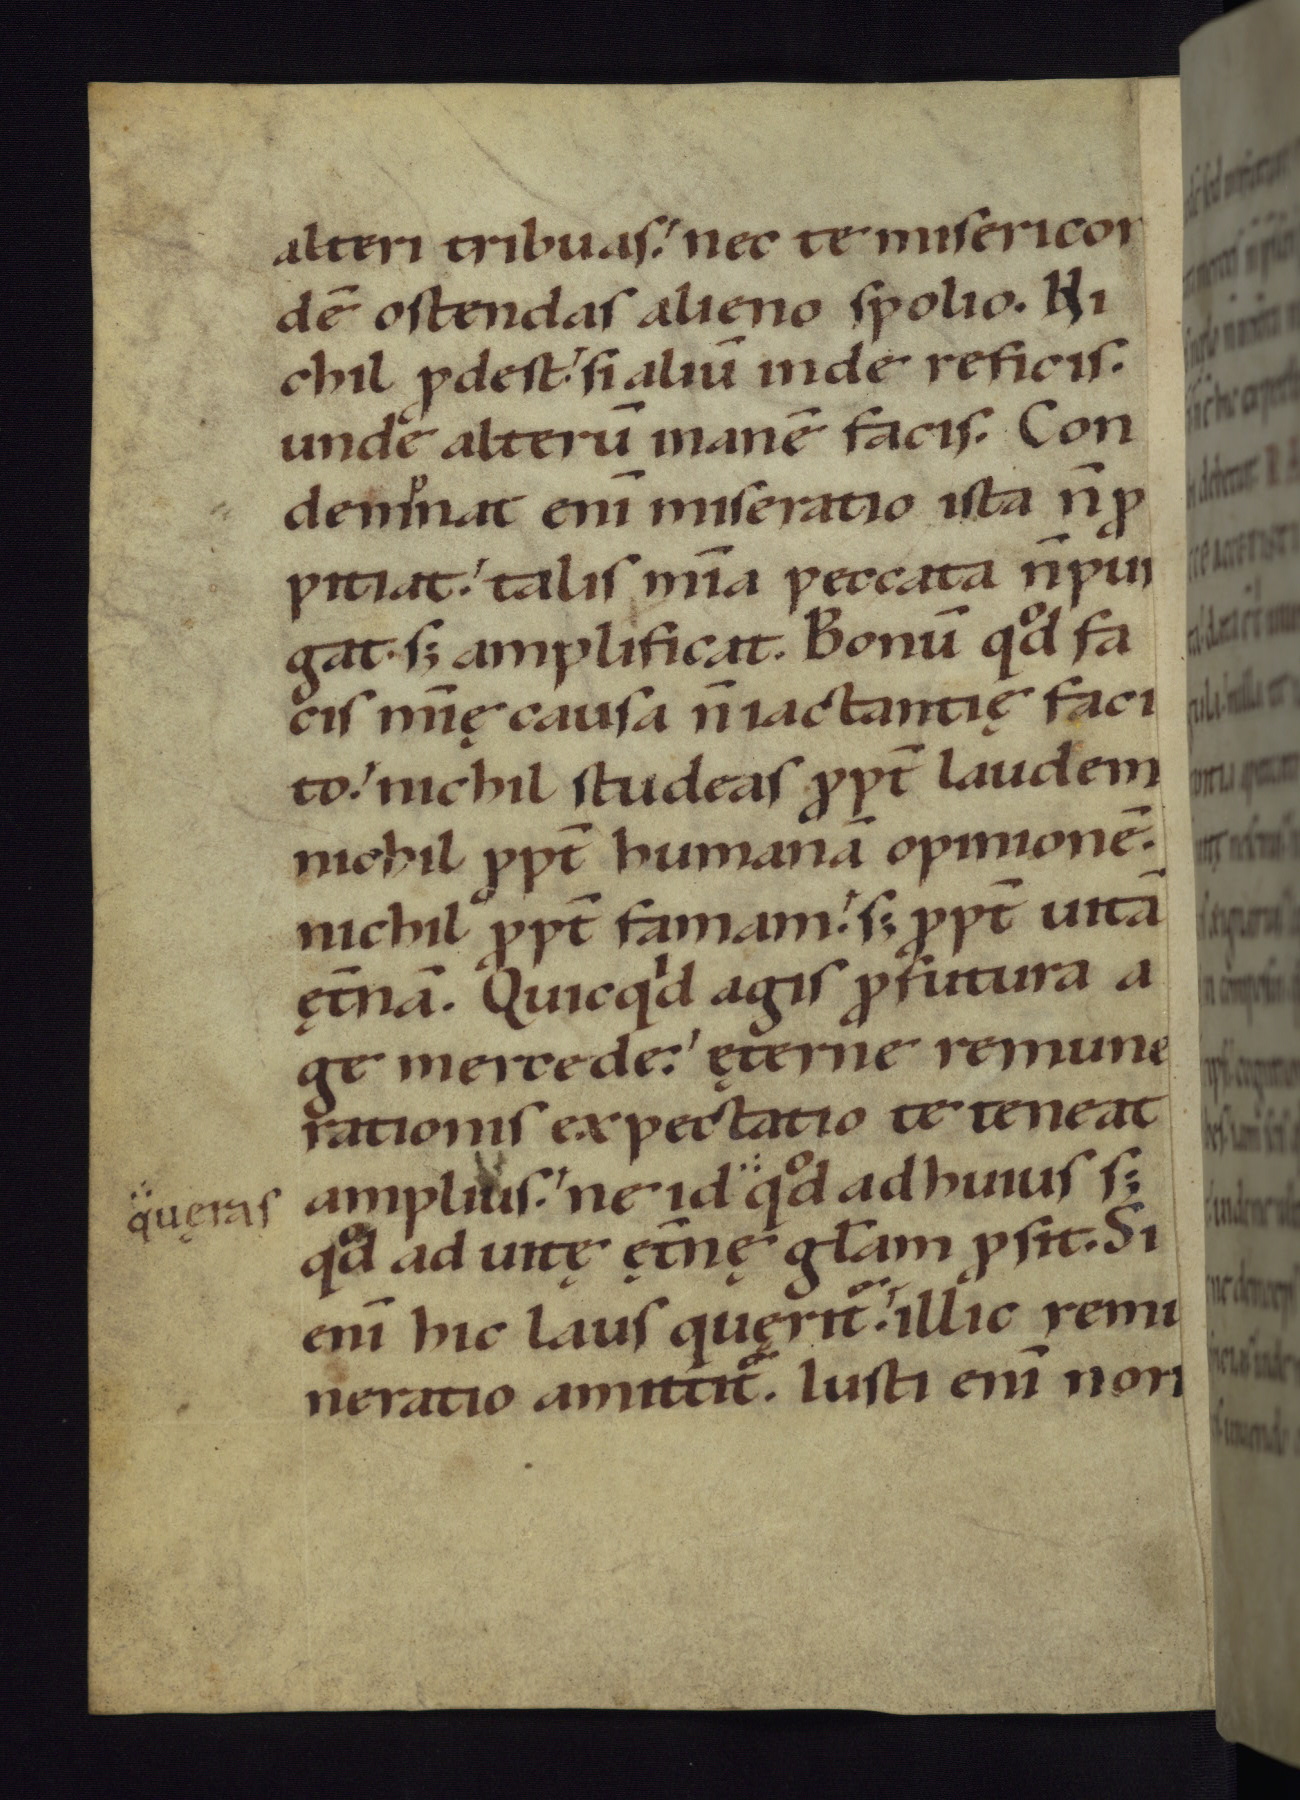 alteri tribuas. nec te misericor
dē ostendas alieno spolio. Ni
chil ꝓdest. si aliū inde reficis.
unde alterū inanē facis. Con
demᵖnat eni̅ miseratio ista n̄ ꝓ
pitiat. talis mīa peccata n̄ pur
gat. sꝫ amplificat. Bonū qͦd fa
cis mīę causa n̄ iactantię faci
to. nichil studeas ꝓpt̄ laudem
nichil ꝓpt̄ humanā opinionē.
nichil ꝓpt̄ famam. sꝫ ꝓpt̄ uitā
ęt̄nā. Quicqⁱd agis ꝓfutura a
ge mercede. ęterne remune
rationis expectatio te teneat
q̈uęras
amplius. ne id qͦd ad huius sꝫ
qͦd ad uitę ęt̄nę głam ꝓsit. Si
eni̅ hic laus quęrit᷑. illic remu
neratio amittit᷑. Iusti eni̅ non